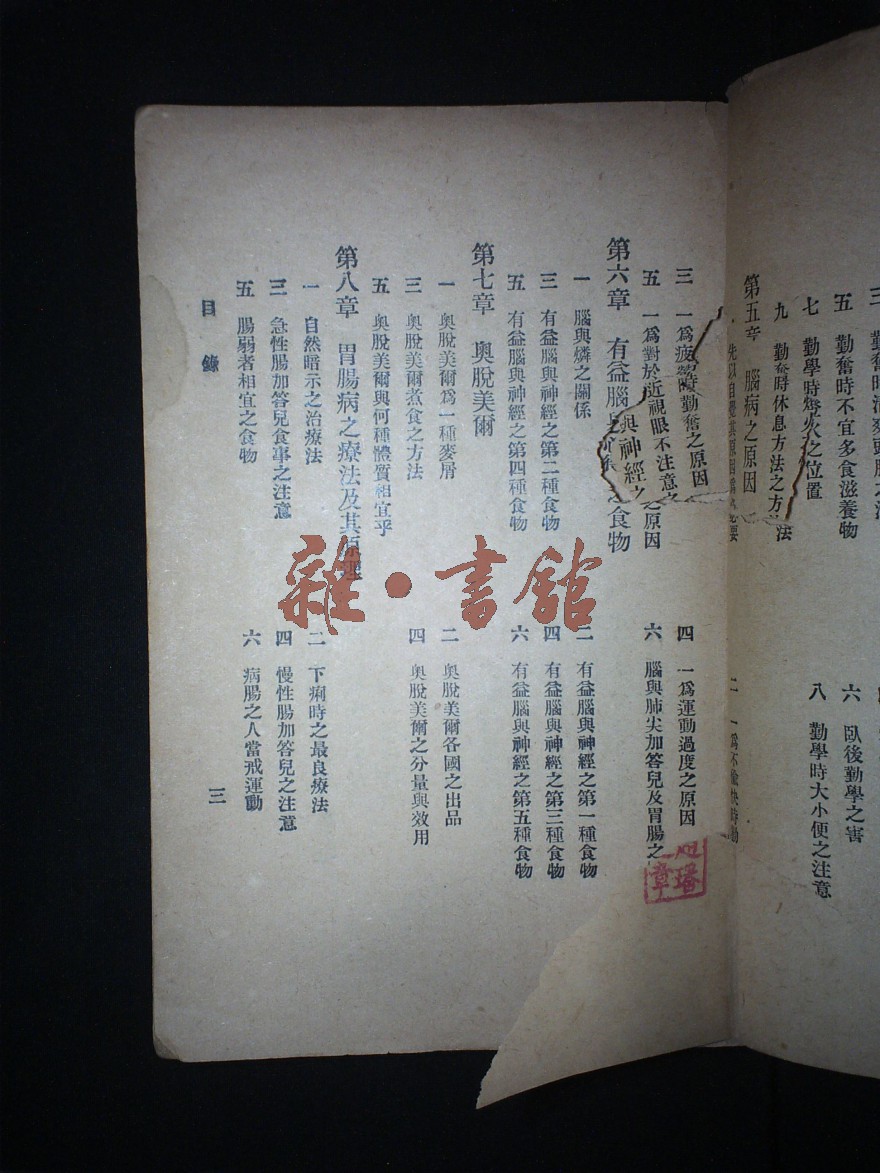 勤奮時不宜多食滋養物
五
六 臥後勤學之害
七 勤學時燈火之位置
八 勤學時大小便之注意
九 勤奮時休息方法之方法
第五章 腦病之原因
二 一爲不愉快時勤
三 一爲疲勞時勤奮之原因
四 一爲運動過度之原因
五 一爲對於近視眼不注意之原因
六 腦與肺尖加答兒及胃腸之
第六章 有益腦與神經之食物
一 腦與燐之關係
二 有益腦與神經之第一種食物
三 有益腦與神經之第二種食物
四 有益腦與神經之第三種食物
五 有益腦與神經之第四種食物
六 有益腦與神經之第五種食物
第七章 奧脫美爾
一 奧脫美爾爲一種麥屑
二 奧脫美爾各國之出品
三 奧脫美爾煮食之方法
四 奧脫美爾之分量與效用
五 奧脫美爾與何種體質相宜乎
第八章 胃腸病之療法及其原理
一 自然暗示之治療法
二 下痢時之最良療法
三 急性腸加答兒食事之注意
四 慢性腸加答兒之注意
五 腸弱者相宜之食物
六 病腸之人當戒運動
目錄
三
雜·書館